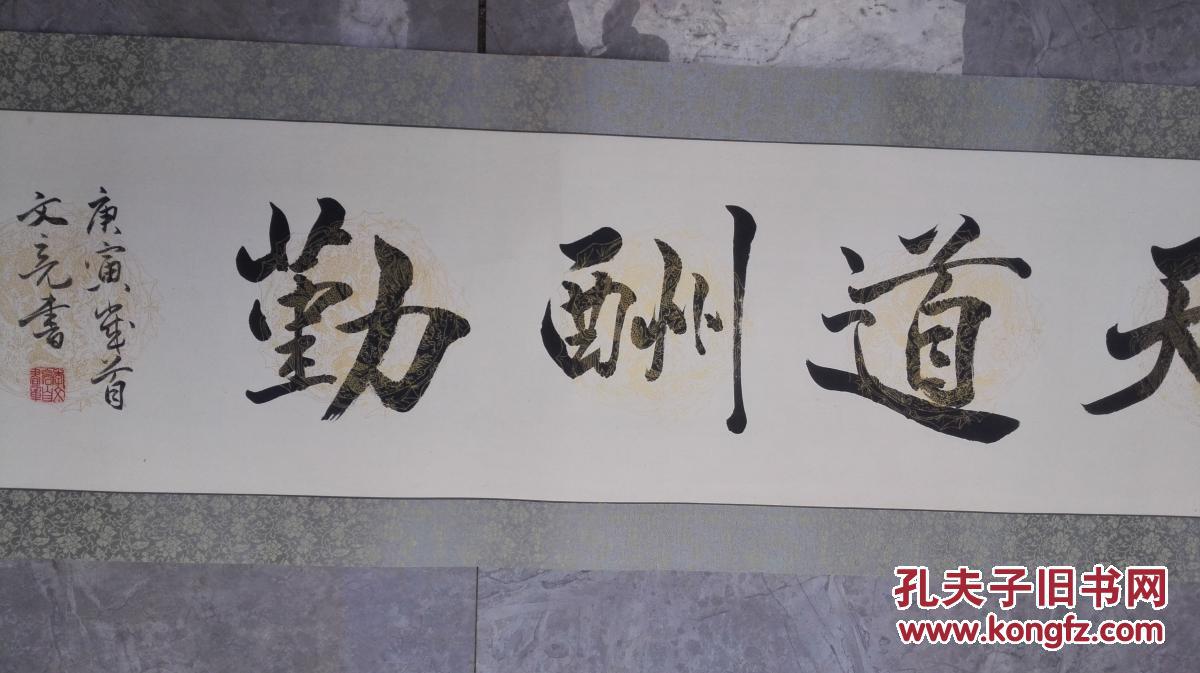 天道酬勤
庚寅岁首
文亮书
孔夫子旧书网
www.kongfz.com